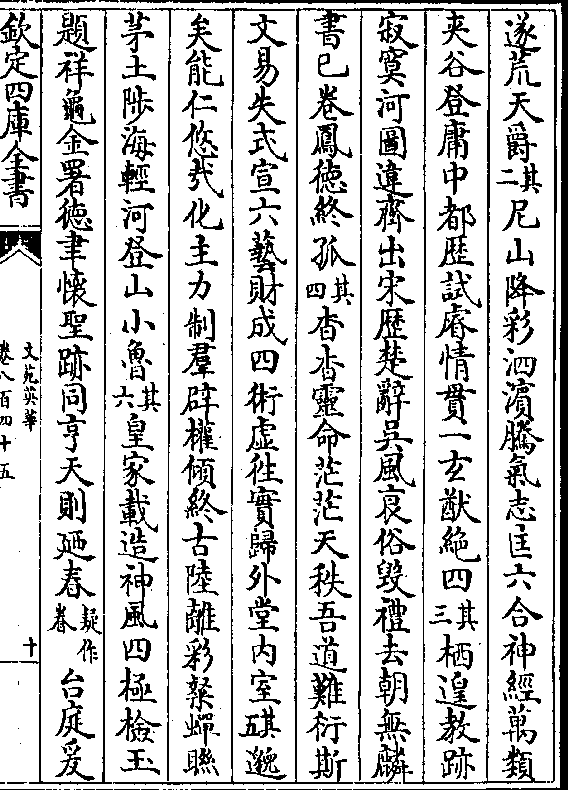 遂荒天爵其二尼山降彩泗濱騰氣志匡六合神經萬類
夾谷登庸中都歴試睿情貫一玄猷絶四其三栖遑教跡
寂寞河圖違齊出宋歴楚辭吳風哀俗毀禮去朝無麟
書已卷鳳徳終孤其四杳杳靈命茫茫天秩吾道難衍斯
文易失式宣六藝財成四術虚徃實歸外堂内室其五邈
矣能仁悠哉化主力制羣辟權傾終古陸離彩粲蟬聮
茅土陟海輕河登山小魯其六皇家載造神風四極檢玉
題祥龜金署徳聿懷聖跡同亨天則廼春疑作眷台庭爰
欽定四庫全書
文苑英華
卷八百四十五
十